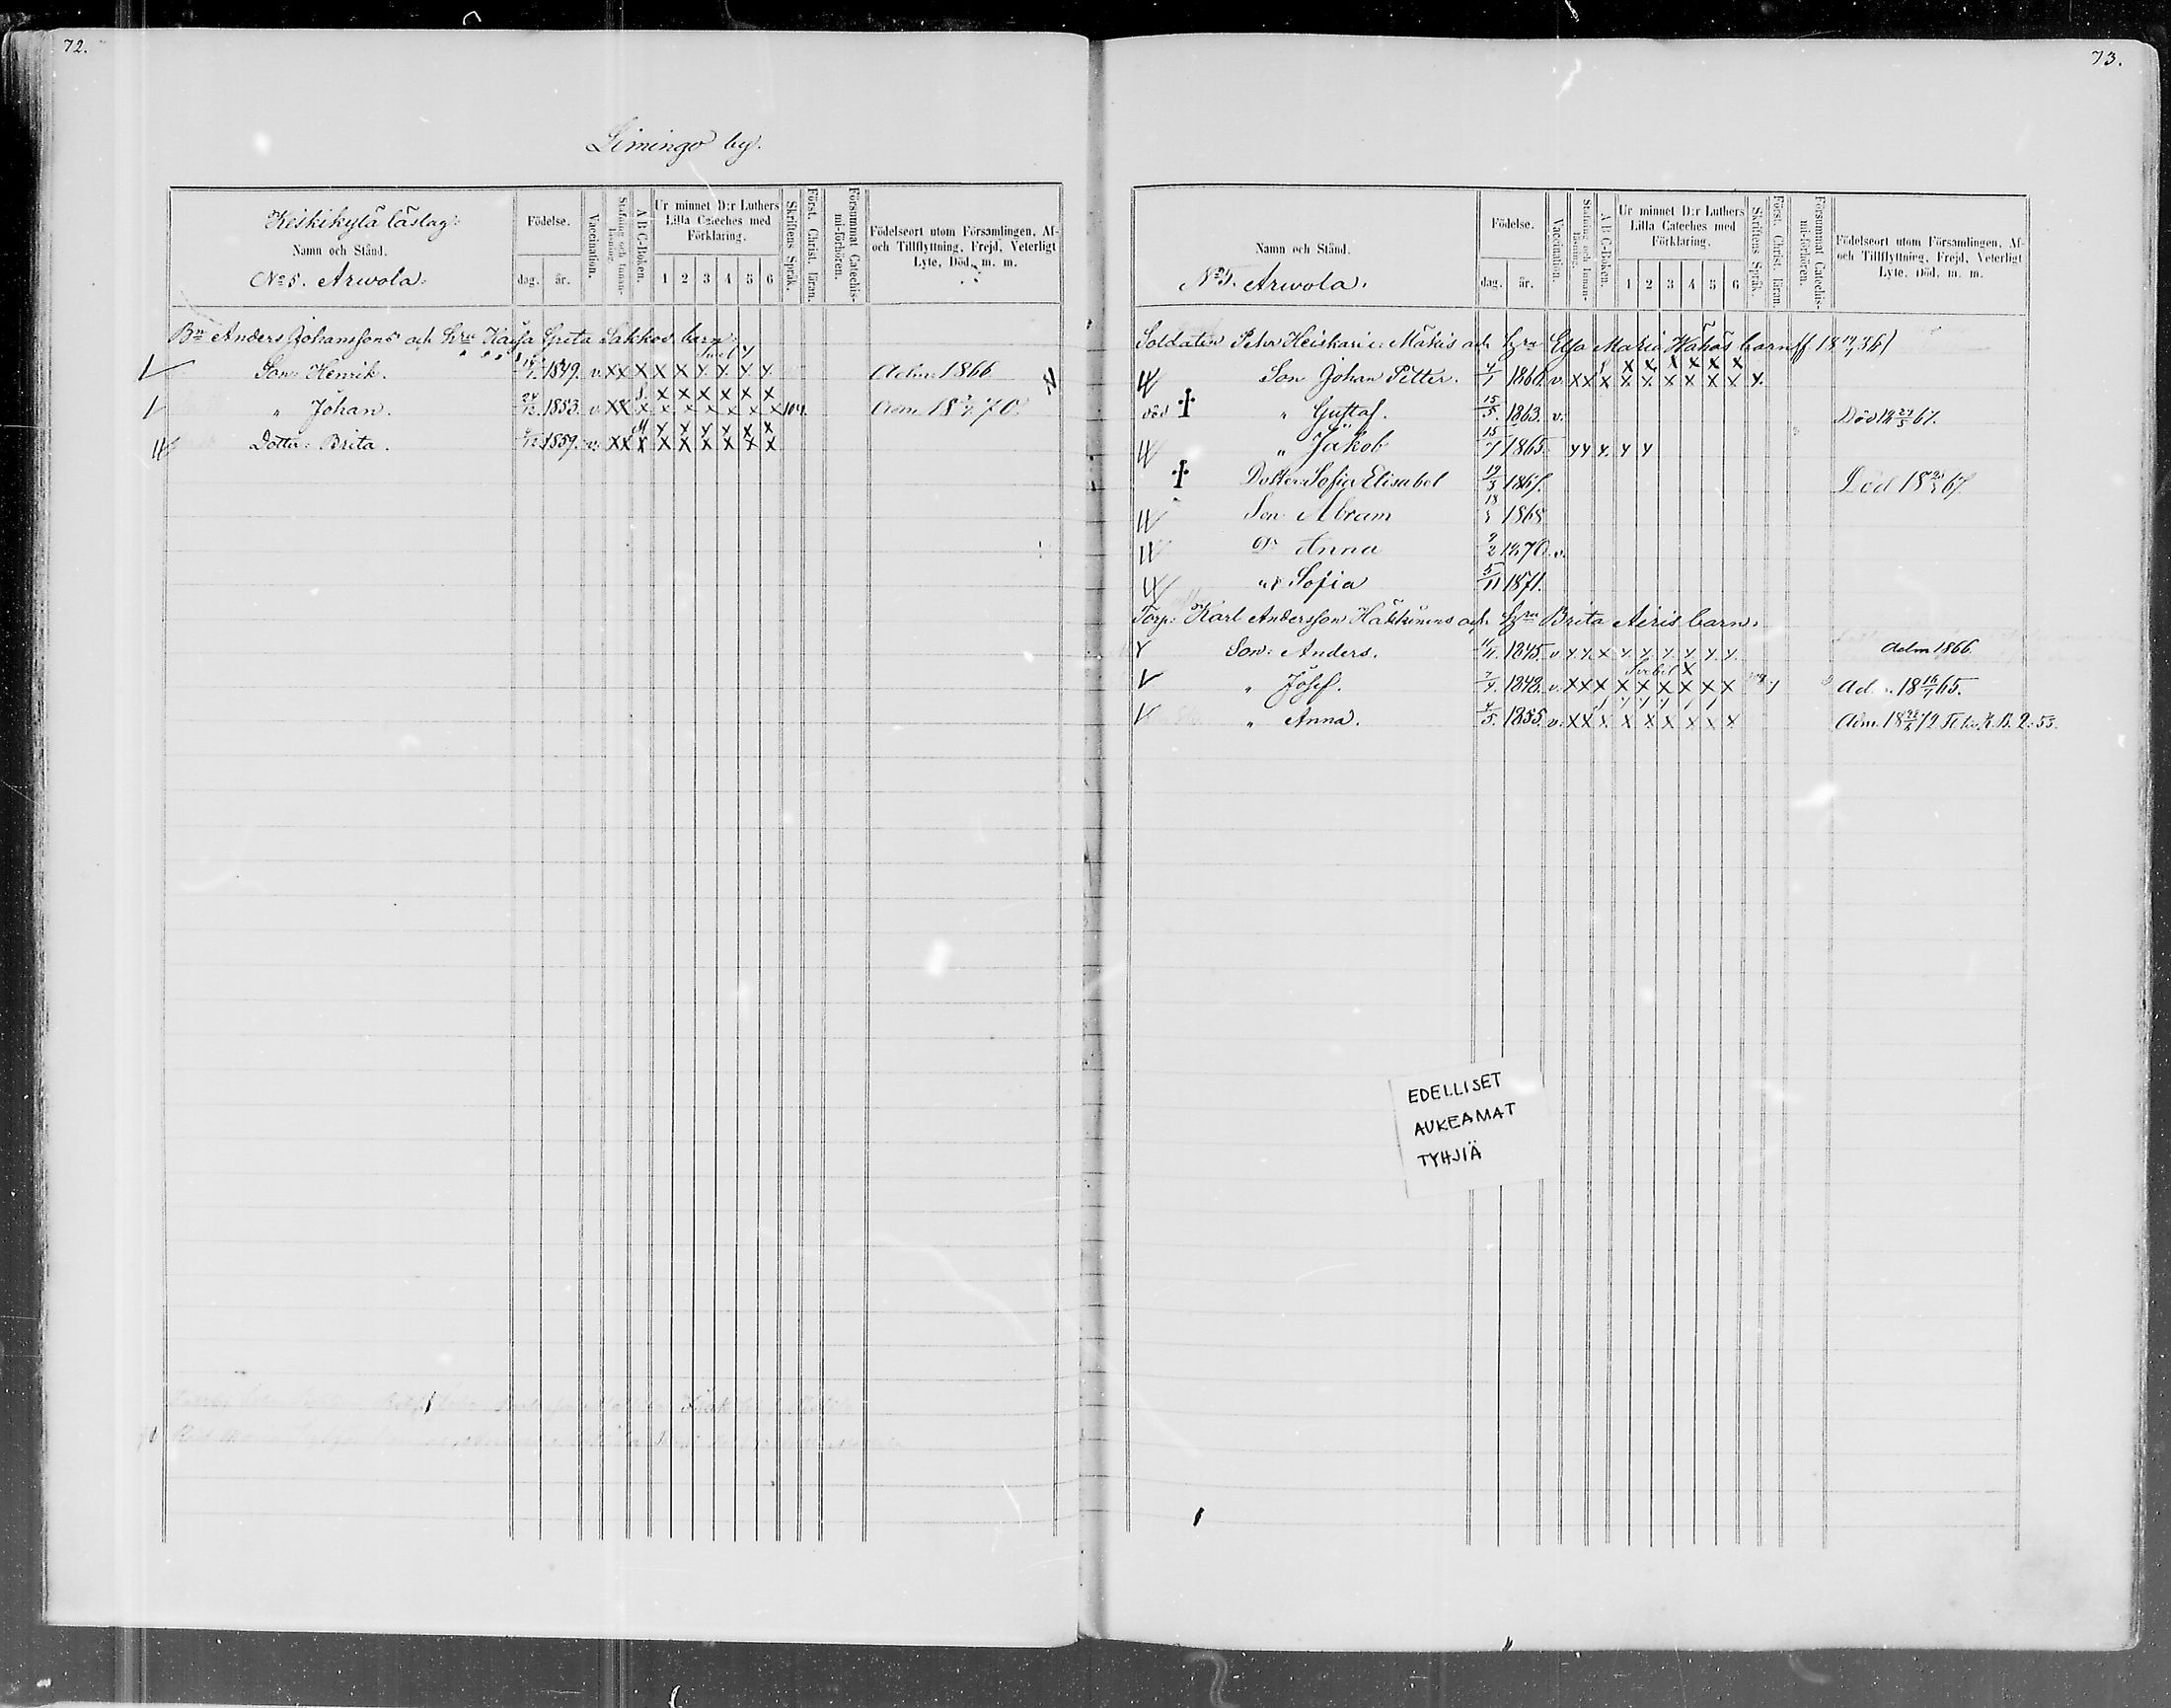 72.
Limingo by.
Keskikylä läslag:
Namn och Stånd.
No 5. Arwola.
Födelse.
dag. år.
Vaccination.
Stafning och Innanläsning.
A B C-Boken.
Ur minnet D:r Luthers Lilla Cateches med Förklaring.
1 2 3 4 5 6
Skriftens Språk.
Först. Christ. läran.
Försummat Catechismi-förhören.
Födelseort utom Församlingen, Af- och Tillflyttning, Frejd, Veterligt Lyte, Död, m. m.
Bn Anders Johanssons och Hru Kaisa Greta Sakkos barn:
Son: Henrik. 1849. v. X X X X X X X X X Adm. 1866
" Johan. 24/12 1853. v. X X X X X X X X X Adm. 70.
Dotter: Brita. 1859. v. X X X X X X X X X
73.
Namn och Stånd.
No 5. Arwola.
Födelse.
dag. år.
Vaccination.
Stafning och Innanläsning.
A B C-Boken.
Ur minnet D:r Luthers Lilla Cateches med Förklaring.
1 2 3 4 5 6
Skriftens Språk.
Först. Christ. läran.
Försummat Catechismi-förhören.
Födelseort utom Församlingen, Af- och Tillflyttning, Frejd, Veterligt Lyte, Död, m. m.
Soldaten Peter Heiskari c. Mäkis och Hru Elsa Maria barn
Son Johan Petter. 4/1 1860. v. X X X X X X X X X
död † " Gustaf. 15/5 1863. v. Död 67.
" Jakob 15/7 1865.
† Dotter Sofia Elisabet 19/3 1867. Död 67.
Son Abram 18 1868
Dr Anna 9/2 1870. v.
" Sofia 5/11 1871.
Torp: Karl Andersson Häkkinens och Hru Brita Airis barn.
Son: Anders. 1845. v. Adm 1866
" Josef. 7/4. 1848. v. X X X X X X X X X Ad. 18 16/7 65.
" Anna. 4/5. 1855. v. X X X X X X X X X Adm. 72
EDELLISET
AUKEAMAT
TYHJIÄ